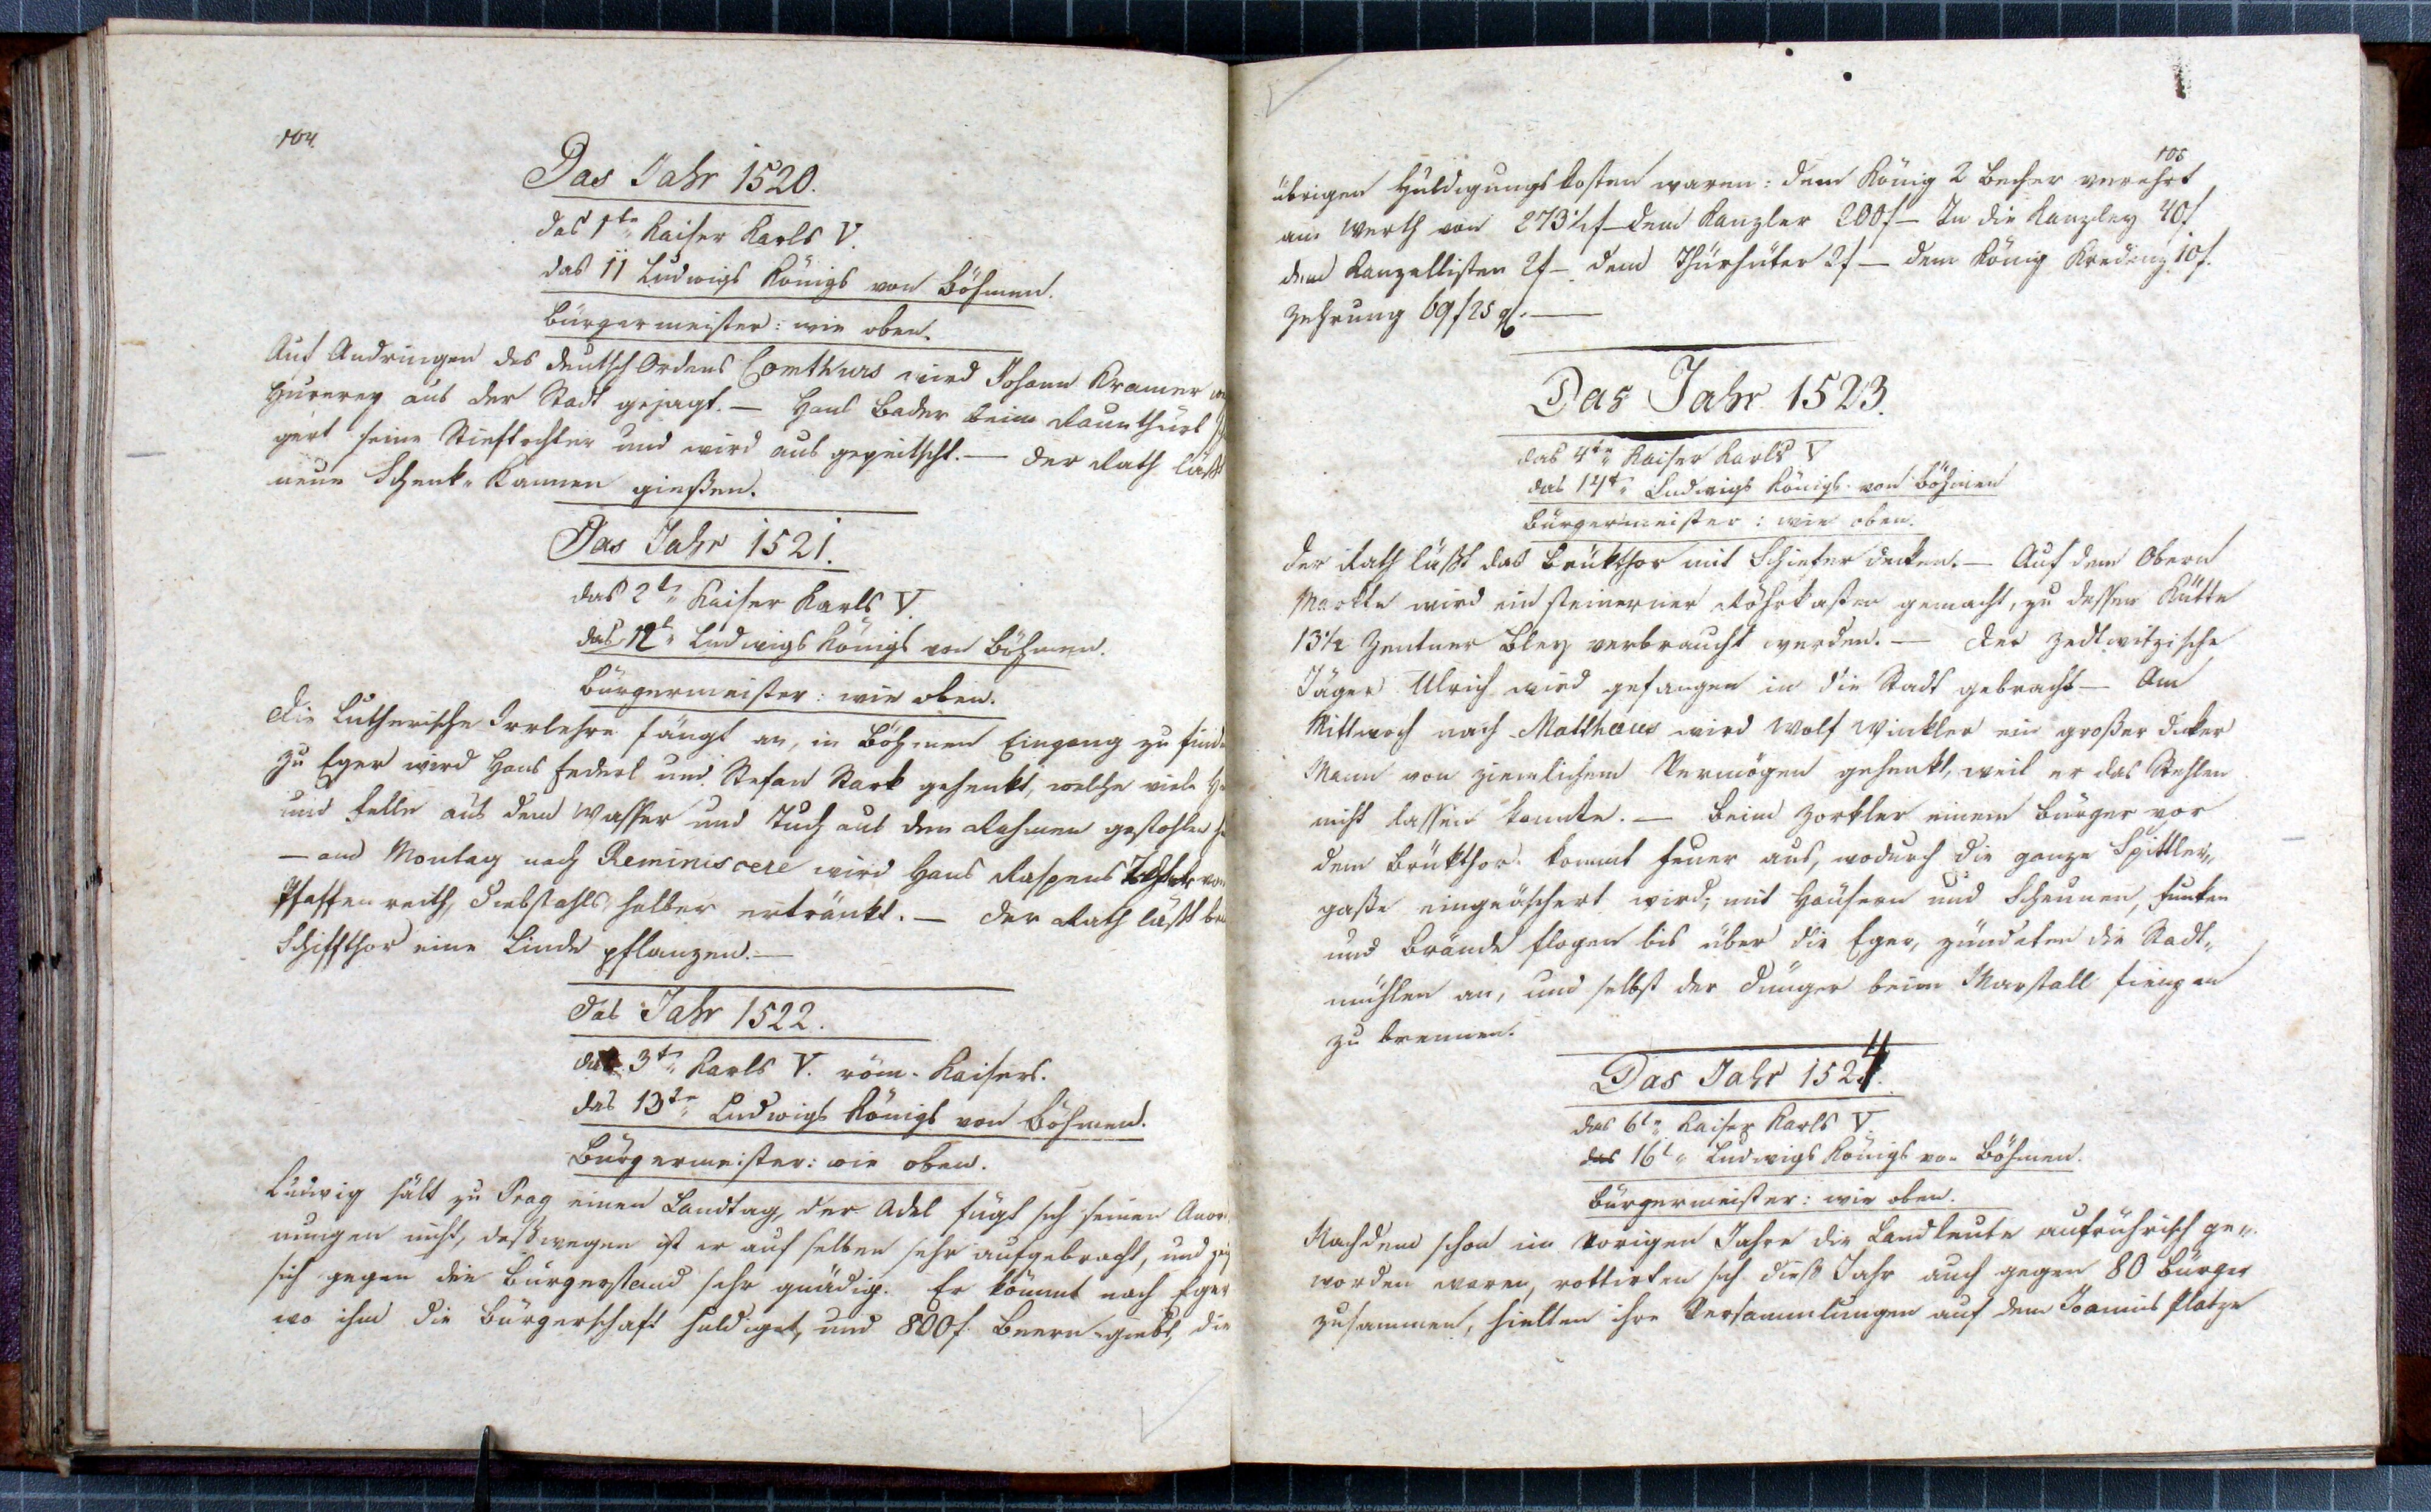 104.
Das Jahr 1520.
das 1te Kaiser Karls V.
das 11 Ludwigs Königs von Böhmen.
Bürgermeister: wie oben.
Auf Andringen des deutsch Ordens Comthurs wird Johann Kramer
Hurerey aus der Stadt gejagt. — Hans Bader beim
gert seine Stieftochter und wird aus gepeitscht. — der Rath läßt
neue Schenk-Kannen gießen.
Das Jahr 1521.
das 2te Kaiser Karls V.
das 12te Ludwigs Königs von Böhmen.
Bürgermeister: wie oben.
die Lutherische Irrlehre fängt an, in Böhmen Eingang zu
Zu Eger wird Hans Federl und Stefan Stark gehenkt, welche viele
und Felle aus dem Wasser und Tuch aus den Rahmen gestohlen
— am Montag nach Reminiscere wird Hans Raspens Tochter von
Pfaffenreith, Diebstahls halber ertränkt. — der Rath läßt
Schiffthor eine Linde pflanzen. —
Das Jahr 1522.
das 3te Karls V. röm. Kaisers.
das 13te Ludwigs Königs von Böhmen.
Bürgermeister: wie oben.
Ludwig hält zu Prag einen Landtag, der Adel fügt sich seinen
nungen nicht, deßwegen ist er auf selben sehr aufgebracht, und
sich gegen die Bürgerstand sehr gnädig. Er kömmt nach Eger
wo ihm die Bürgerschaft huldiget, und 800 f. giebt, die
105
übrigen Huldigungskosten waren: dem König 2 Becher verehrt
am Werth von 273½ f — dem Kanzler 200 f — In die Kanzley 40 f
dem Kanzellisten 2 f — dem Thürhüter 2 f — dem König Kredenz 10 f.
Zehrung 69 f 25 —
Das Jahr 1523.
das 4te Kaiser Karls V
das 14te Ludwigs Königs von Böhmen
Bürgermeister: wie oben.
der Rath läßt das Brükthor mit Schiefer decken. — Auf dem Obern
Markte wird ein steinerner Röhrkasten gemacht, zu dessen Kütte
13½ Zentner Bley verbraucht werden. — der Zedtwitzische
Jäger Ulrich wird gefangen in die Stadt gebracht — Am
Mittwoch nach Matthaeus wird Wolf Winkler ein großer dicker
Mann von ziemlichem Vermögen gehenkt, weil er das Stehlen
nicht lassen konnte. — Beim Zorkler einem Bürger vor
dem Brükthor kommt Feuer aus, wodurch die ganze Spittler„
gaße eingeäschert wird; mit Häusern und Scheunen, Funken
und Brände flogen bis über die Eger, zündeten die Stadt„
mühlen an, und selbst der Dünger beim Marstall fieng an
zu brennen.
Das Jahr 1524.
das 6te Kaiser Karls V.
das 16te Ludwigs Königs von Böhmen.
Bürgermeister: wie oben.
Nachdem schon im vorigen Jahre die Landleute aufrührisch ge„
worden waren, rottirten sich dieß Jahr auch gegen 80 Bürger
zusammen, hielten ihre Versammlungen auf dem Joannis Platze